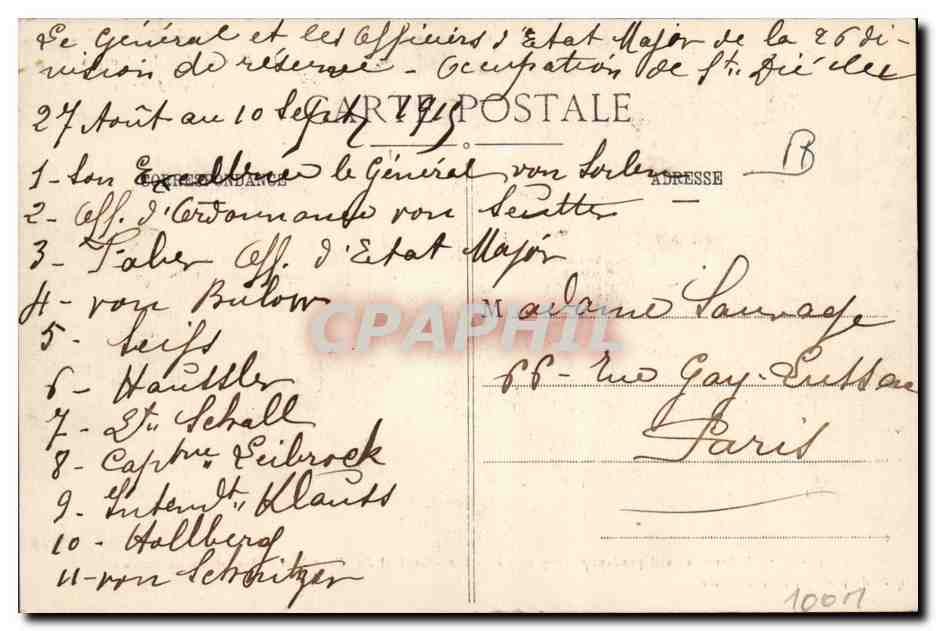 Le Général et les Officiers d'Etat Major de la 26 di-
vision de réserve - Occupation de St. Dié du
27 Août au 10 Sept 1915
CARTE POSTALE
CORRESPONDANCE
ADRESSE
1 - Son Excellence le Général von Soden
2 - Off. d'Ordonnance von Seutter
3 - Faber Off. d'Etat Major
4 - von Bulow
5 - Seifs
6 - Haussler
7 - Lt. Schall
8 - Captne Leibrock
9 - Intendt. Klauss
10 - Hollberg
11 - von Schnitzer
Madame Sauvage
66 - rue Gay-Lussac
Paris
CPAPHIL
1001